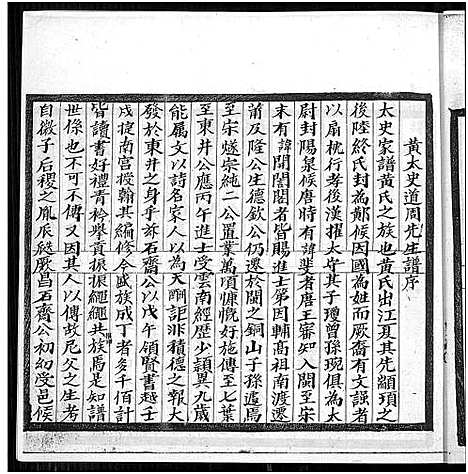 黃太史道周先生譜序
太史家譜黃氏之族也黃氏出江夏其先顓頊之
後陸終氏封為鄭候因國為姓而厥裔有文强者
以扇枕行孝後漢擢太其子瓊曾孫琬俱為太
尉封陽泉候唐時有諱斐者唐王審知入閩至宋
末有諱開閣閣者皆賜進士第因輔高祖南渡遷
莆及隆公生德欽公仍遷於閩之銅山子孫遂焉
至宋遂宗純二公置業萬頃慷慨好施傳至七葉
至東井公應丙午進士受雲南經歷少穎異九歲
能屬文以詩名家人以為天酬詎非積德之報大
發於東井之身乎訪石齋公以戊午領賢書越壬
戌捷南宮授翰其編修今盛族成丁者多千佰計
皆讀書好禮青衿舉貢振振繩繩共族焉是知譜
世係也不可不傳又因其人以傳故尼父之生考
自微子后稷之胤辰發厥昌石齋公初幼受邑候